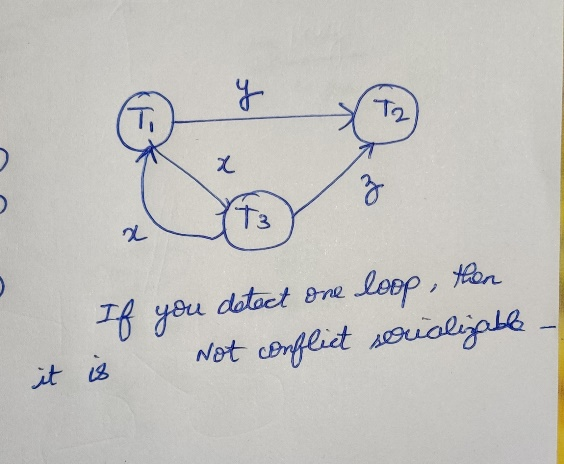 y
T1
T2
x
T3
z
x
If you detect one loop, then
it is Not conflict serializable -